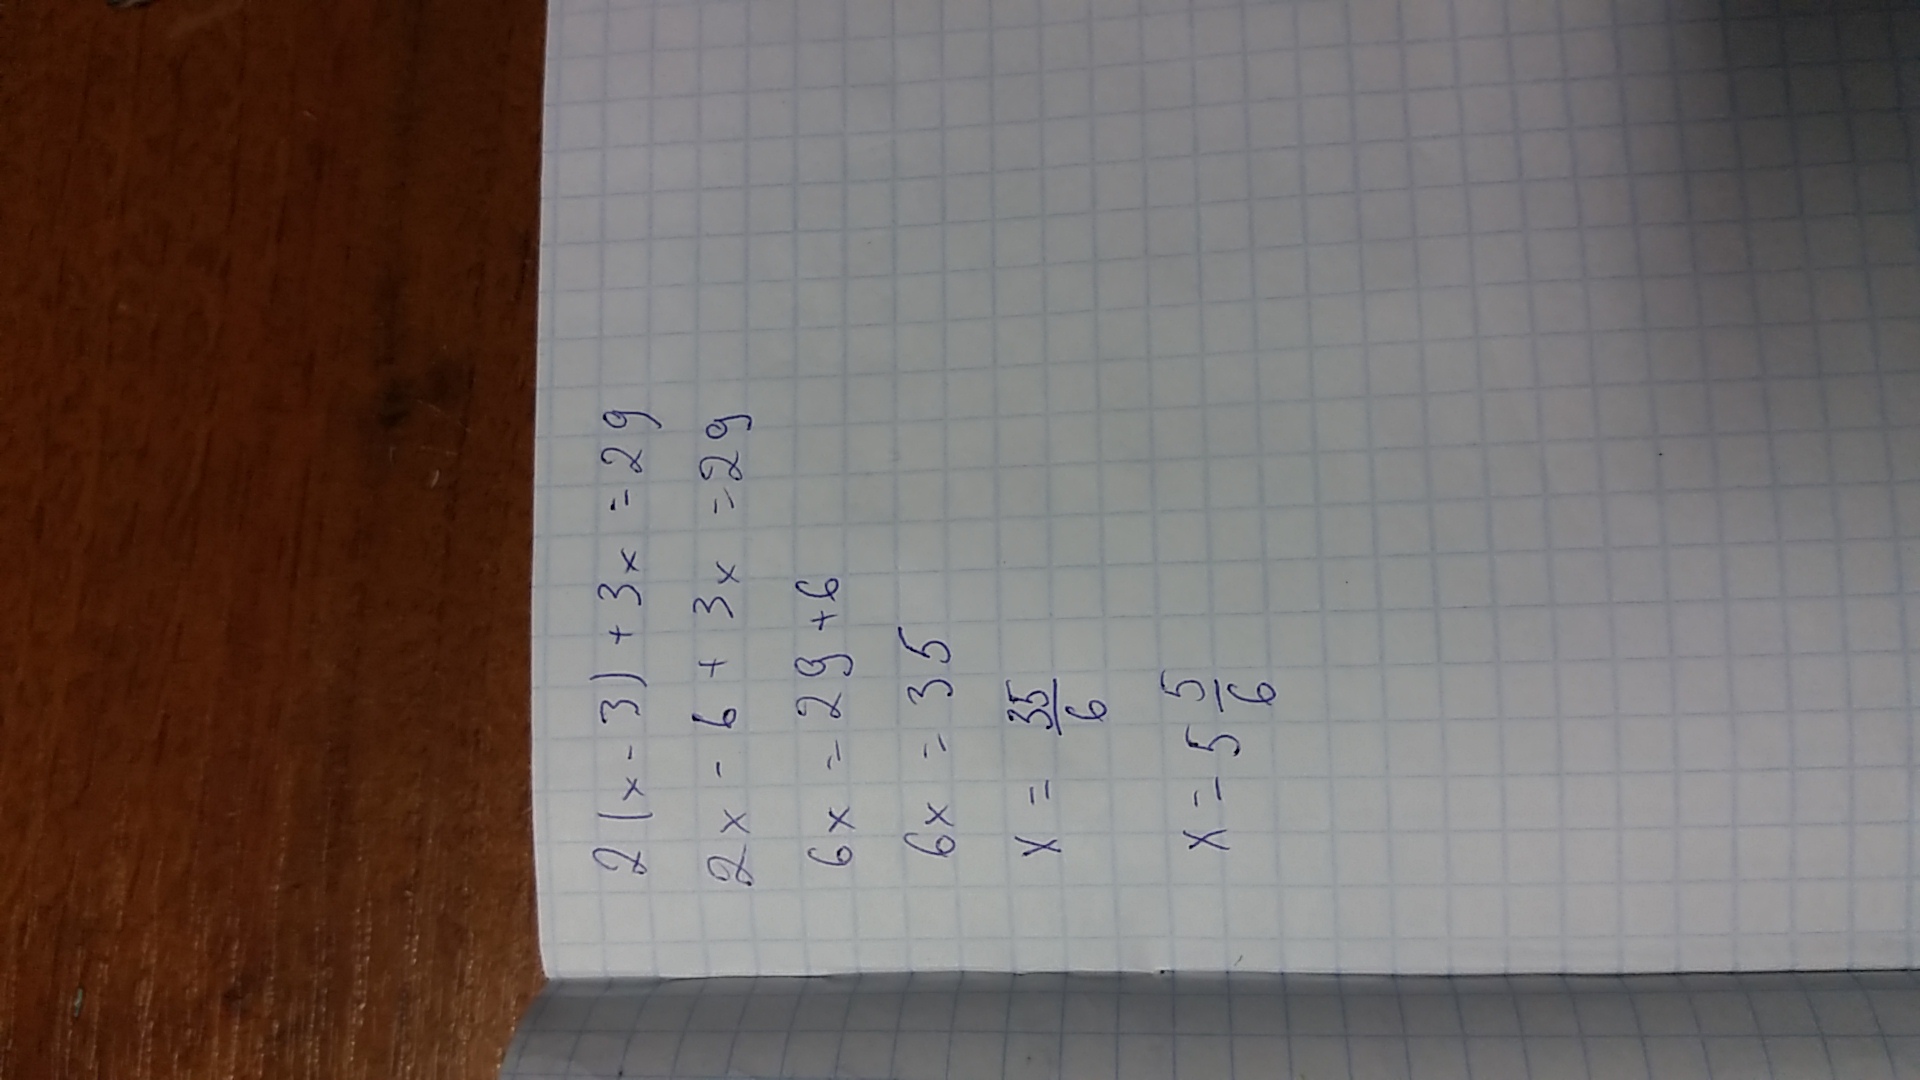 2(x-3)+3x=29
2x-6+3x=29
6x=29+6
6x=35
x=35/6
x=5 5/6